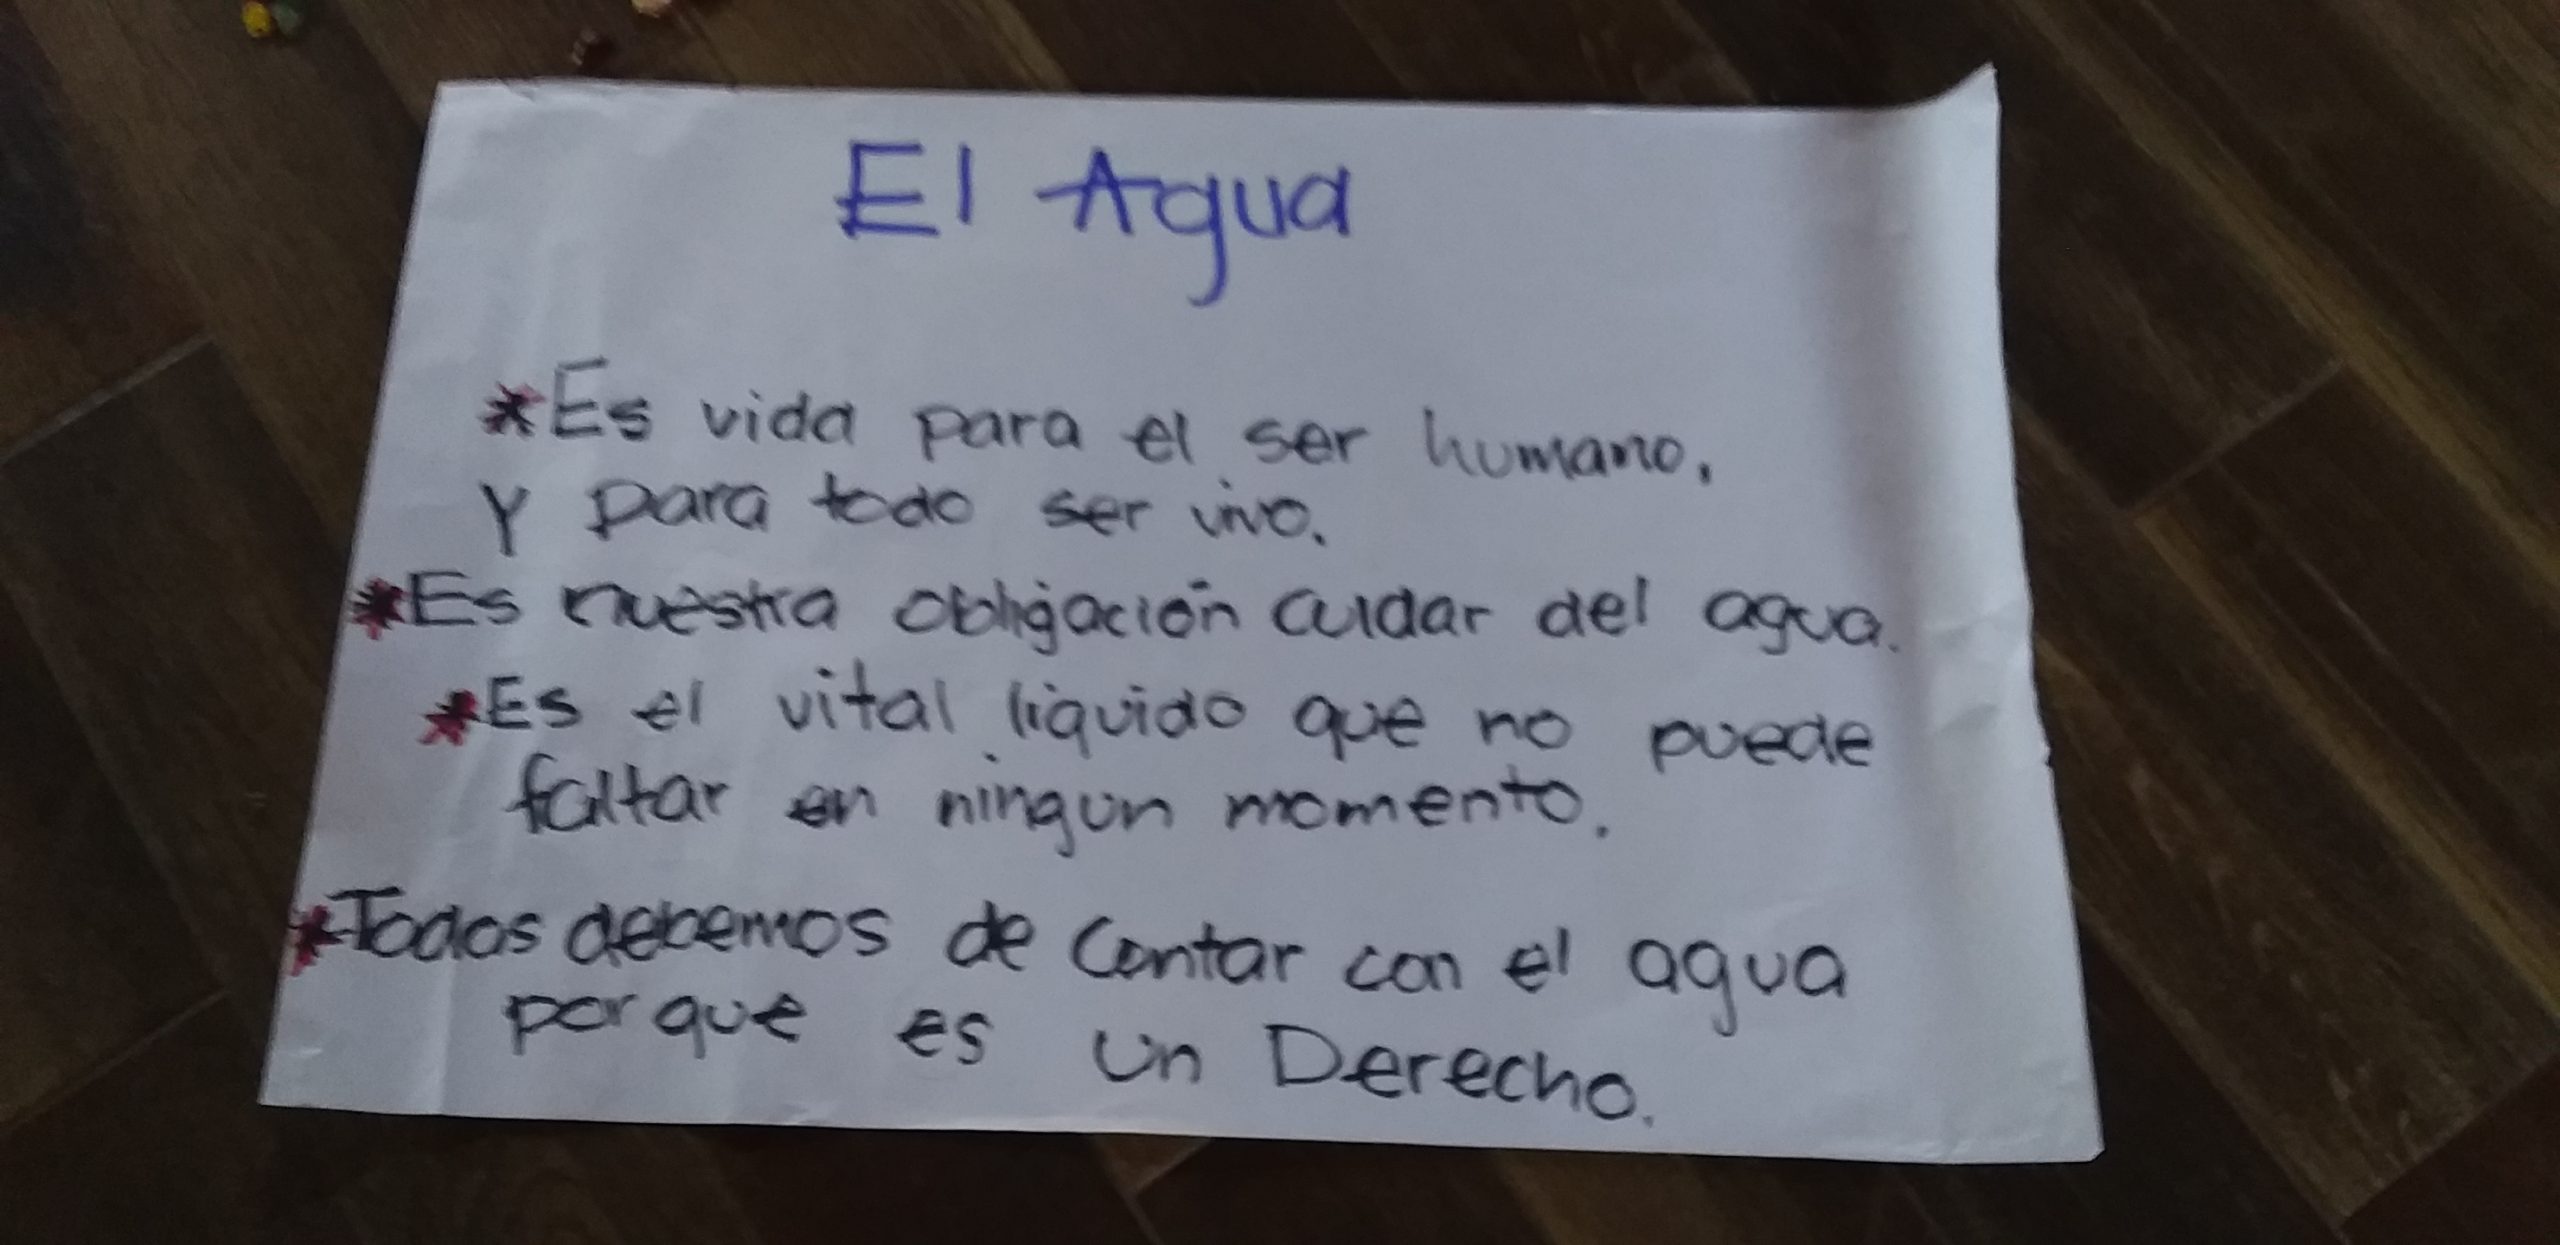 El Agua
*Es vida para el ser humano,
Y para todo ser vivo.
*Es nuestra obligación cuidar del agua.
*Es el vital liquido que no puede
faltar en ningun momento.
*Todos debemos de Contar con el agua
porque es un Derecho.